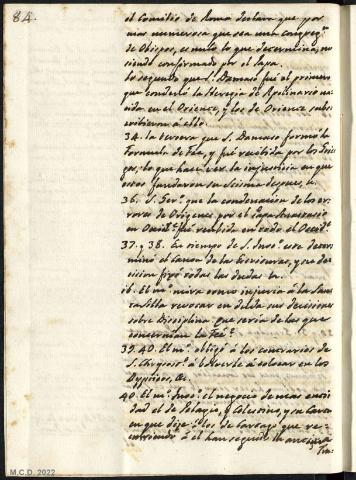 84.
el Concilio de Roma declara que por
mas numerosa que sea una Congreg.n
de Obispos, es nulo lo que determina, no
siendo confirmado por el Papa.
lo segundo que S. Damaso fué el primero
que condenó la Heregia de Apolinario na-
cida en el Oriente, y los de Oriente subs-
cribieron á ello.
34. lo tercero que S. Damaso formó la
Formula de Fée, y fué recibida por los Grie-
gos, lo que hace ver la injusticia en que
estos fundaron su scisma despues, &.
36. S. Ger.mo que la condenacion de los er-
rores de Origenes por el Papa Anastasio
en Occid.te fué recibida en todo el Occid.te
37. y 38. En tiempo de S. Inoc.o se deter-
minó el Canon de las Escrituras, y su de-
cision fixó todas las dudas &.
ib. El m.o mira como injuria á la San-
ta Silla revocar en duda sus decisiones
sobre Disciplina que seria de las que
conciernan la Fee?
39. 40. El m.o obligó á los contrarios de
S. Chrysost.o á bolverle á colocar en los
Dypticos, &c.
40. El m.o Inoc.o el negocio de mas enti-
dad el de Pelagio, y Celestino, y su Carta
en que dice: los de Cartago que re-
curriendo á el han seguido la antigua
Tra-
M.C.D. 2022